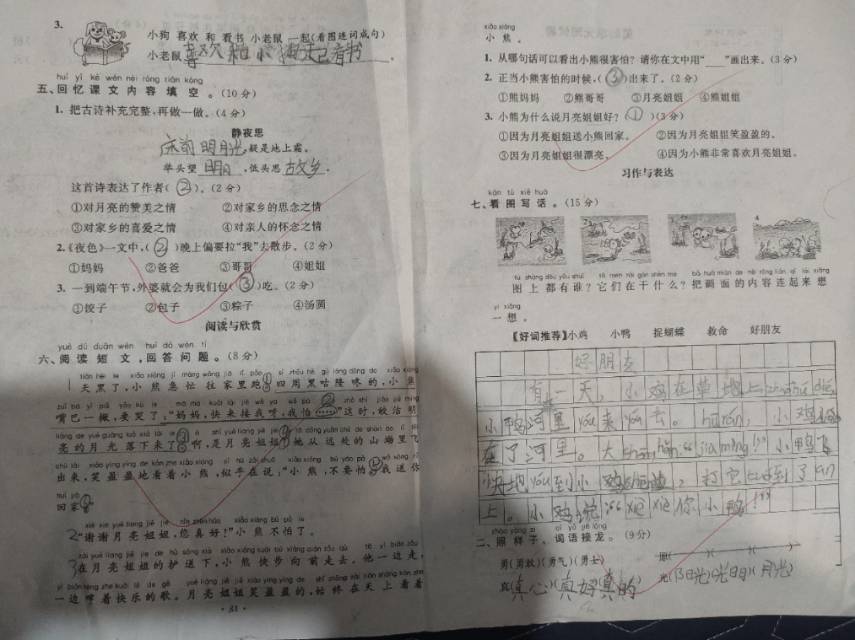 3.
小狗 喜欢 和 看书 小老鼠 一起(看图连词成句)
小老鼠喜欢和小狗一起看书。
huí yì kè wén nèi róng tián kòng
五、回忆课文内容填空。(10分)
1. 把古诗补充完整,再做一做。(4分)
静夜思
床前明月光,疑是地上霜。
举头望明月,低头思故乡。
这首诗表达了作者(②)。(2分)
①对月亮的赞美之情 ②对家乡的思念之情
③对家乡的喜爱之情 ④对亲人的怀念之情
2.《夜色》一文中,(②)晚上偏要拉“我”去散步。(2分)
①妈妈 ②爸爸 ③哥哥 ④姐姐
3. 一到端午节,外婆就会为我们包(③)吃。(2分)
①饺子 ②包子 ③粽子 ④汤圆
阅读与欣赏
yuè dú duǎn wén huí dá wèn tí
六、阅读短文,回答问题。(8分)
天黑了,小熊急忙往家里跑。四周黑咕隆咚的,小熊
嘴巴一撇,要哭了:“妈妈,快来接我呀,我怕……”这时,皎洁明
亮的月光落下来了。啊,是月亮姐姐!她从远处的山坳里飞
出来,笑盈盈地看着小熊,似乎在说:“小熊,不要怕,我送你
huí jiā
回家。
2“谢谢月亮姐姐,您真好!”小熊不怕了。
3在月亮姐姐的护送下,小熊快步向前走去。他一边走,
一边哼着快乐的歌。月亮姐姐笑盈盈的,始终在天上看着
xiǎo xióng
小熊。
1. 从哪句话可以看出小熊很害怕?请你在文中用“ ”画出来。(3分)
2. 正当小熊害怕的时候,(③)出来了。(2分)
①熊妈妈 ②熊哥哥 ③月亮姐姐 ④熊姐姐
3. 小熊为什么说月亮姐姐好?(①)(3分)
①因为月亮姐姐送小熊回家。 ②因为月亮姐姐笑盈盈的。
③因为月亮姐姐很漂亮。 ④因为小熊非常喜欢月亮姐姐。
习作与表达
kàn tú xiě huà
七、看图写话。(15分)
4
图上都有谁?它们在干什么?把画面的内容连起来想
yì xiǎng
一想。
【好词推荐】小鸡 小鸭 捉蝴蝶 救命 好朋友
好朋友
有一天,小鸡在草地上
小鸭河里 yóu来 yóu去。 小鸡
在了河里。大 小鸭飞
快地yóu到小鸡 ,把它 到了
上。小鸡说:“ 你小鸭!”
二、照样子,词语接龙。(9分)
男(男孩)(男气)(男士)
真(真心)(真好)(真的) 光(阳光)(光明)(月光)
· 81 ·